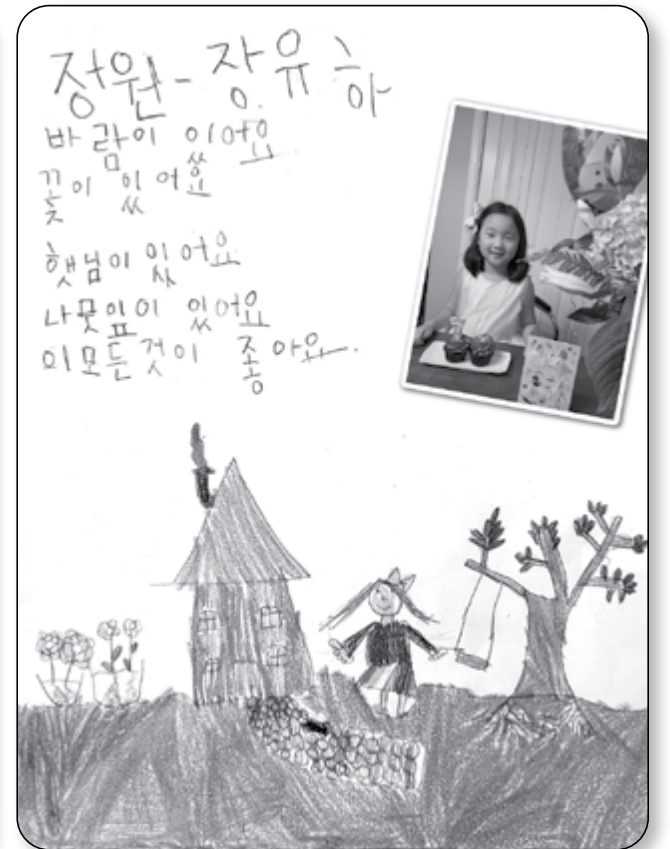 정원 - 장유하
바람이 있어요
꽃이 있어요
햇님이 있어요
나뭇잎이 있어요
이 모든 것이 좋아요.